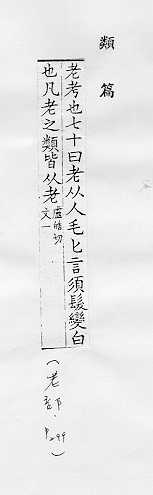 類篇
老考也七十曰老从人毛匕言須髮變白
也凡老之類皆从老盧皓切文一
(老部.P.299)